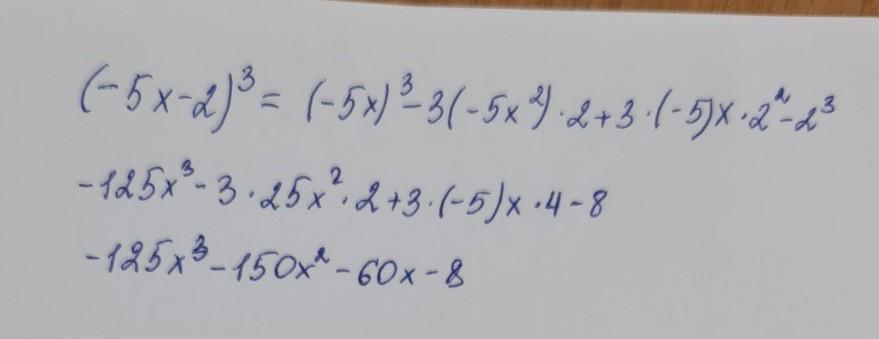 (-5x-2)³ = (-5x)³-3(-5x²)·2+3·(-5)x·2²-2³
-125x³-3·25x²·2+3·(-5)x·4-8
-125x³-150x²-60x-8